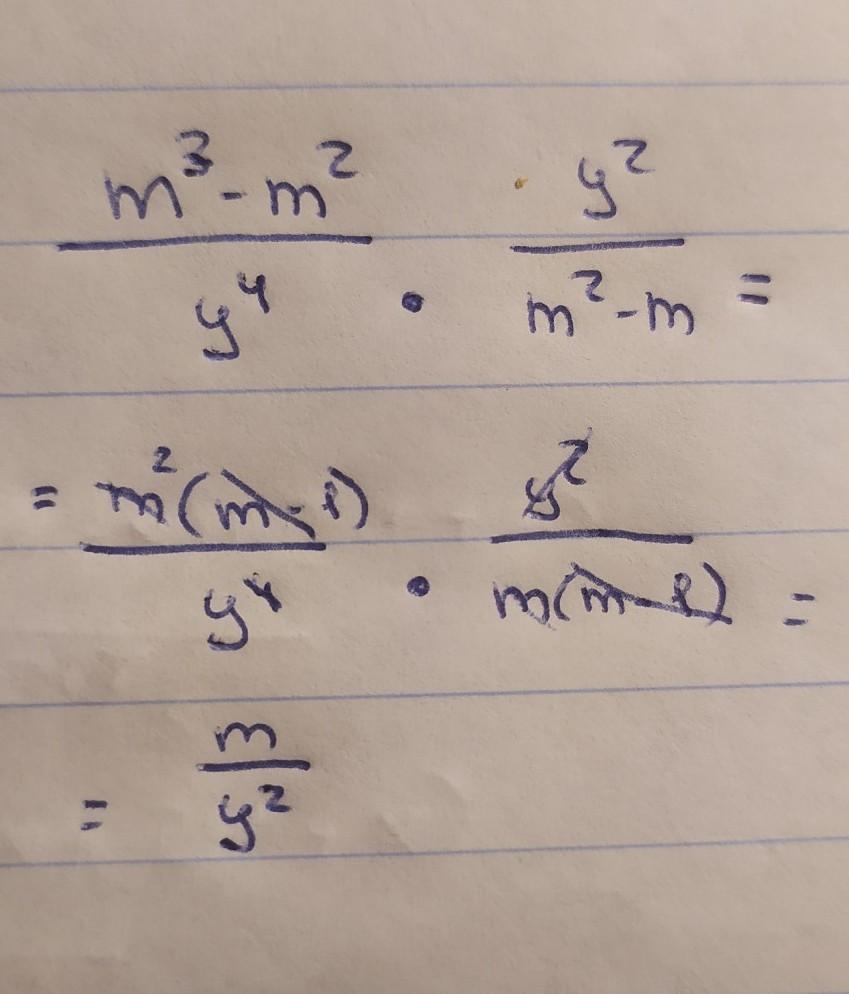 \frac{m^3 - m^2}{y^4} \cdot \frac{y^2}{m^2 - m} =
= \frac{m^2(m-1)}{y^4} \cdot \frac{y^2}{m(m-1)} =
= \frac{m}{y^2}